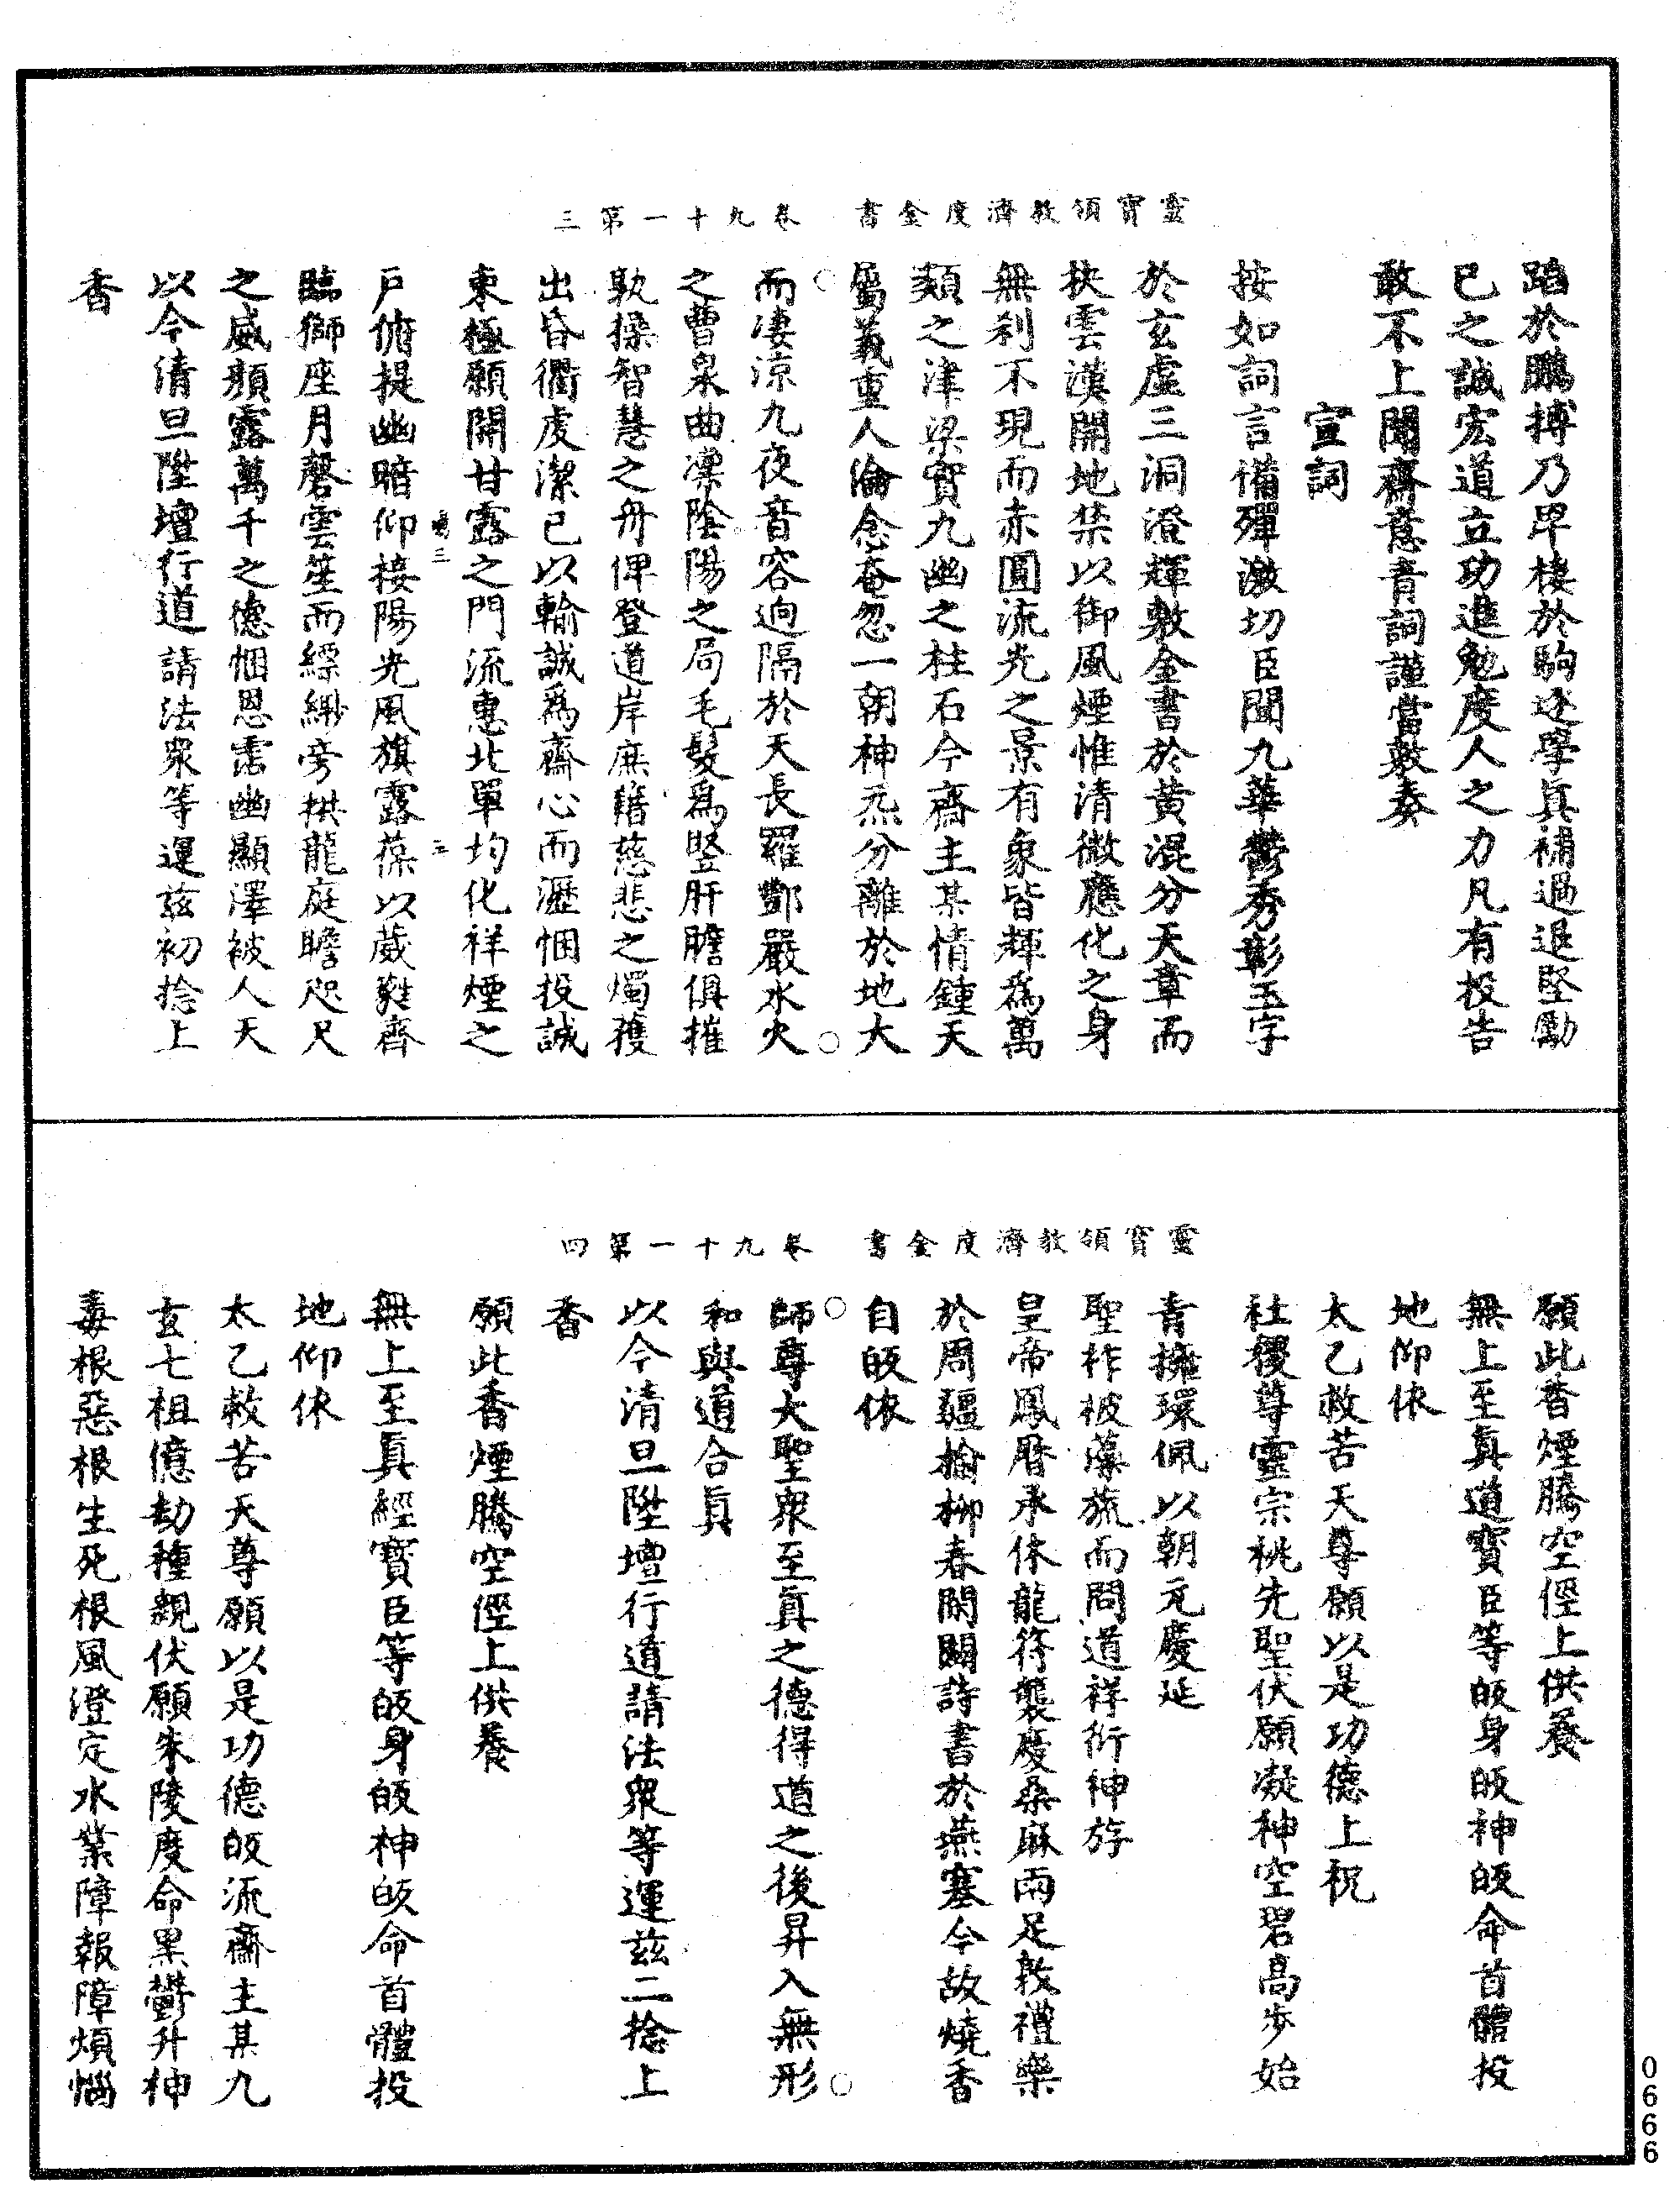 靈寶領教濟度金書　卷九十一第三
蹈於鵬搏乃早棲於駒逐學眞補過退堅勵
已之誠宏道立功進勉度人之力凡有投告
敢不上聞齋意青詞謹當敷奏
宣詞
按如詞言備殫激切臣聞九華鬱秀彰玉字
於玄虛三洞澄輝敷金書於黃混分天章而
抉雲漢開地禁以御風煙惟清微應化之身
無刹不現而赤圓流光之景有象皆輝爲萬
類之津梁實九幽之柱石今齋主某情鍾天
屬義重人倫念奄忽一朝神炁分離於地大
而凄涼九夜音容逈隔於天長羅酆嚴水火
之曹泉曲凜陰陽之局毛髮爲竪肝膽俱摧
孰操智慧之舟俾登道岸庶籍慈悲之燭獲
出昏衢虔潔已以輸誠爲齋心而瀝悃投誠
東極願開甘露之門流惠北單均化祥煙之
三
戶俯提幽暗仰接陽光風旗露葆以葳蕤齊
臨獅座月磬雲笙而縹緲旁拱龍庭瞻咫尺
之威顏露萬千之德悃恩霑幽顯澤被人天
以今清旦陞壇行道請法衆等運兹初捻上
香
靈寶領教濟度金書　卷九十一第四
願此香煙騰空徑上供養
無上至眞道寳臣等皈身皈神皈命首體投
地仰依
太乙救苦天尊願以是功德上祝
社稷尊靈宗祧先聖伏願凝神空碧高步始
青擁環佩以朝元慶延
聖祚披藻旒而問道祥衍神斿
皇帝鳳曆承休龍符襲慶桑麻雨足敦禮樂
於周疆榆柳春閑闢詩書於燕塞今故燒香
自皈依
師尊大聖衆至眞之德得道之後昇入無形
和與道合眞
以今清旦陞壇行道請法衆等運兹二捻上
香
願此香煙騰空徑上供養
無上至眞經寶臣等皈身皈神皈命首體投
地仰依
太乙救苦天尊願以是功德皈流齋主某九
玄七祖億劫種親伏願朱陵度命黑鬱升神
毒根惡根生死根風澄定水業障報障煩惱
0666